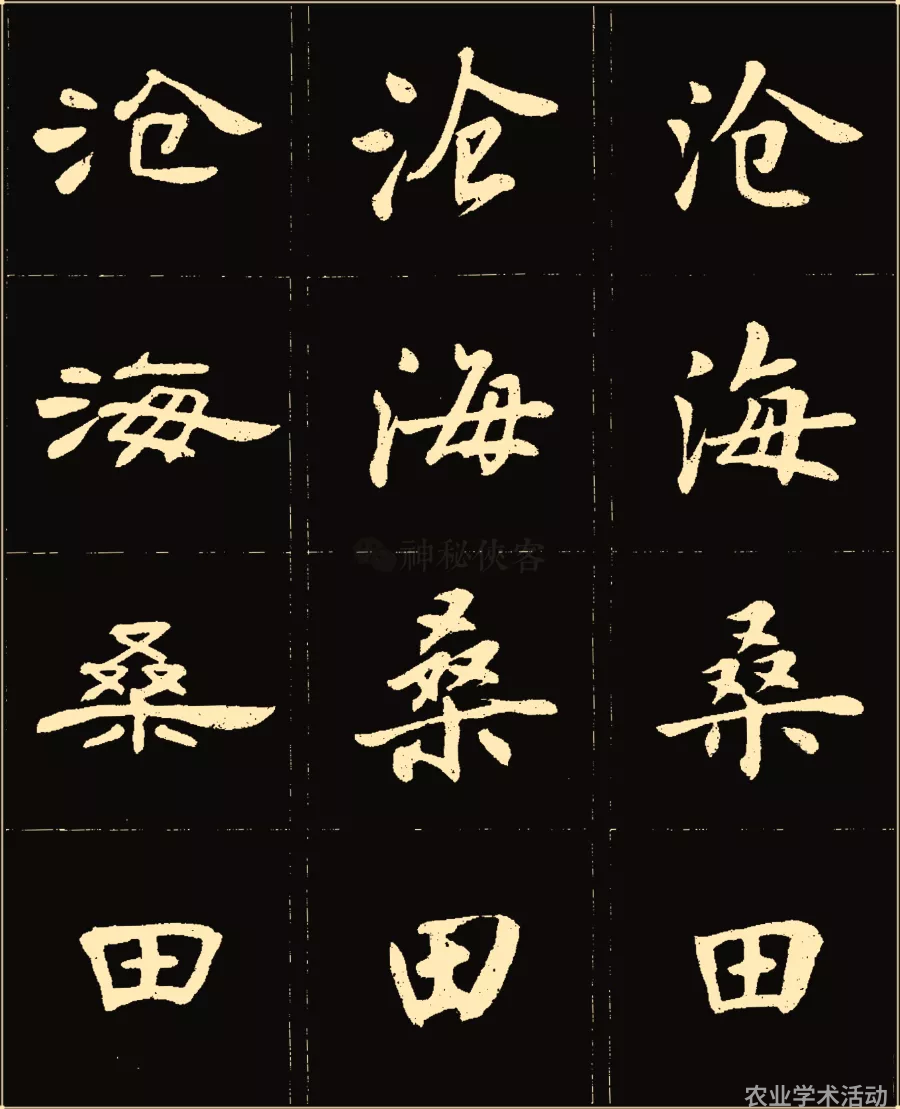 沧 沧 沧
海 海 海
桑 桑 桑
田 田 田
神秘侠客
农业学术活动